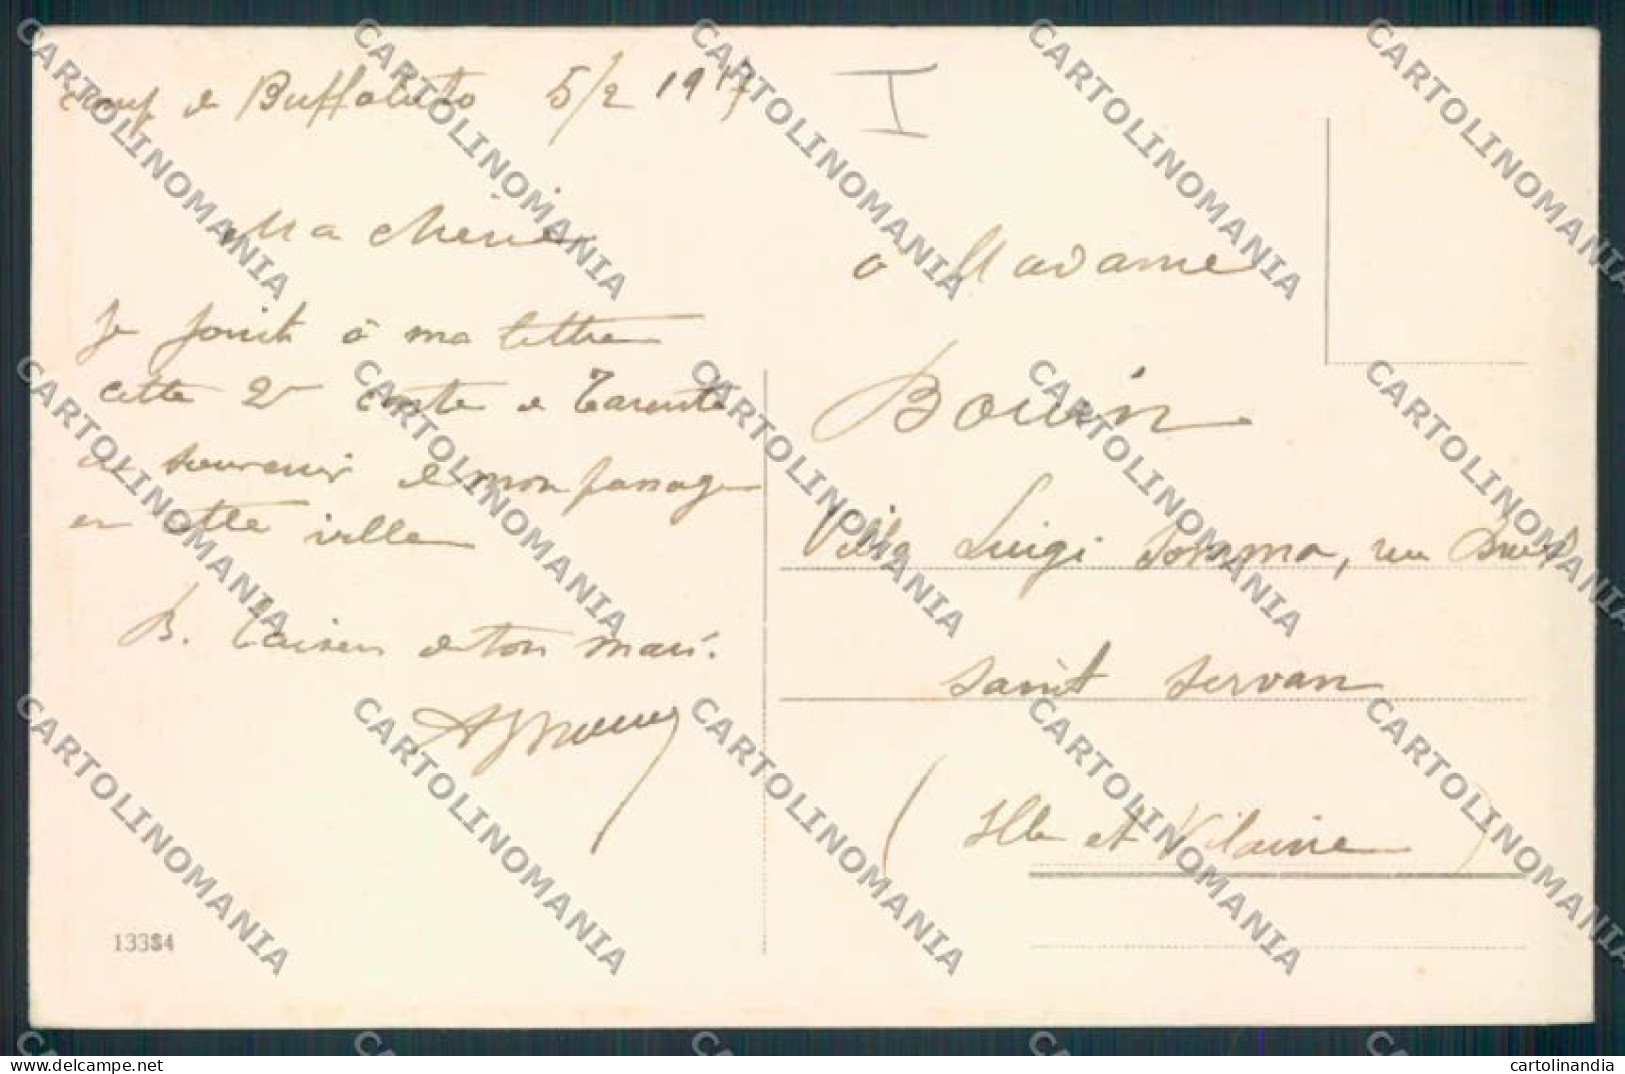 Camp de Buffoluto 5/2 1917
I
Ma chérie
Je joint à ma lettre
cette 2e carte de Tarente
en souvenir de mon passage
en cette ville
B. baisers de ton mari.
à Madame
Bouin
Villa Luigi Somma, rue
Saint Servan
(Ille et Vilaine)
13384
CARTOLINOMANIA
cartolinandia